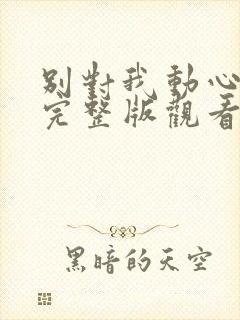 別對我動心
完整版觀看
黑暗的天空